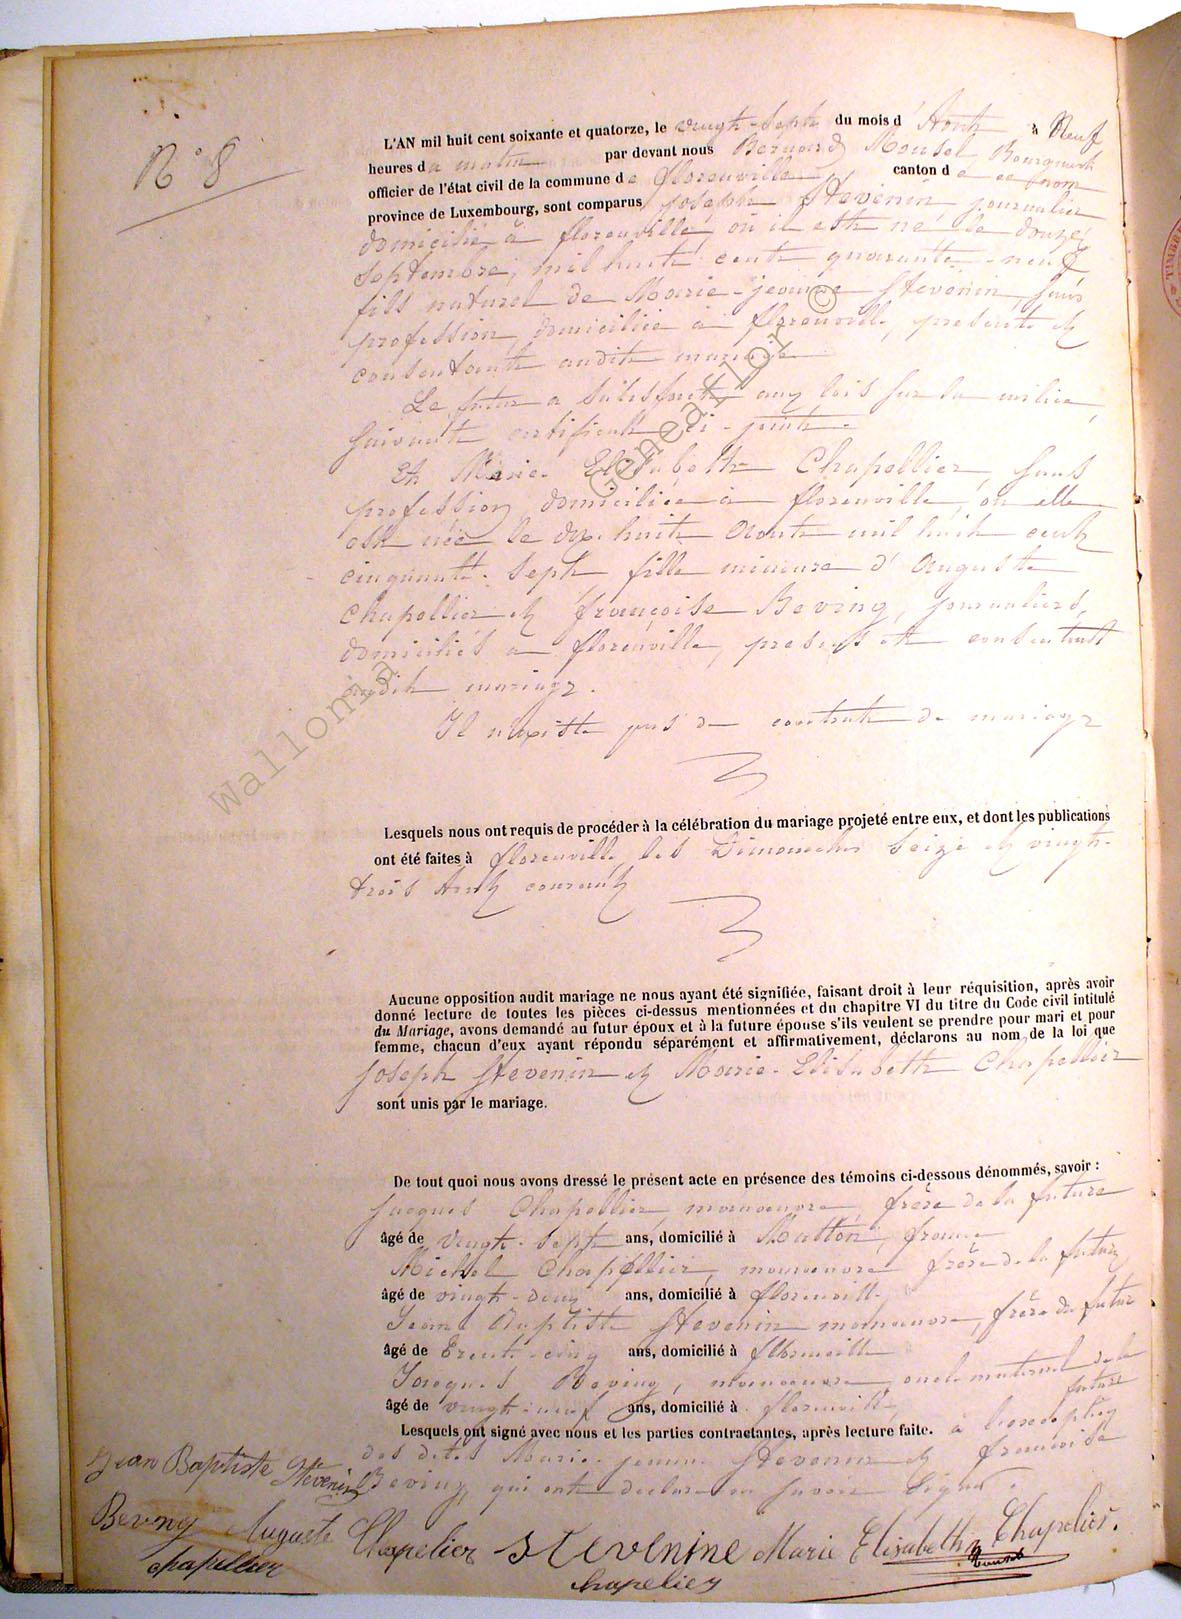 N° 8
L'AN mil huit cent soixante et quatorze, le vingt-sept du mois d'Août à Neuf
heures du matin par devant nous Bernard Mousel Bourgmestre
officier de l'état civil de la commune de florenville, canton de ce nom
province de Luxembourg, sont comparus Joseph Stevenin, journalier
domicilié à florenville, où il est né le douze
septembre, mil huit cent quarante-neuf
fils naturel de Marie-jeanne Stevenin, sans
profession, domiciliée à florenville, présente et
consentante audit mariage
Le futur a satisfait aux lois sur la milice,
suivant certificat ci-joint.
Et Marie-Elisabeth Chapellier, sans
profession, domiciliée à florenville, où elle
est née le dix-huit Août mil huit cent
cinquante-sept, fille mineure d'Auguste
Chapellier et françoise Beving, journaliers,
domiciliés à florenville, présents et consentant
audit mariage.
Il n'existe pas de contrat de mariage
Lesquels nous ont requis de procéder à la célébration du mariage projeté entre eux, et dont les publications
ont été faites à florenville les Dimanches seize et vingt-
trois Août courant
Aucune opposition audit mariage ne nous ayant été signifiée, faisant droit à leur réquisition, après avoir
donné lecture de toutes les pièces ci-dessus mentionnées et du chapitre VI du titre du Code civil intitulé
du Mariage, avons demandé au futur époux et à la future épouse s'ils veulent se prendre pour mari et pour
femme, chacun d'eux ayant répondu séparément et affirmativement, déclarons au nom de la loi que
Joseph Stevenin et Marie-Elisabeth Chapellier
sont unis par le mariage.
De tout quoi nous avons dressé le présent acte en présence des témoins ci-dessous dénommés, savoir :
Jacques Chapellier, manoeuvre, frère de la future
âgé de vingt-sept ans, domicilié à Matton, france
Michel Chapellier, manoeuvre frère de la future
âgé de vingt-deux ans, domicilié à florenville
Jean Baptiste Stevenin manoeuvre, frère du futur
âgé de trente-cinq ans, domicilié à florenville
Jacques Beving, manoeuvre, oncle maternel de la
future
âgé de vingt-neuf ans, domicilié à florenville
Lesquels ont signé avec nous et les parties contractantes, après lecture faite. à l'exception
des dites Marie-jeanne Stevenin et françoise
Beving, qui ont déclaré ne savoir signer.
Jean Baptiste Stevenin
Beving Auguste Chapelier STEVENINE Marie Elisabeth Chapelier.
chapellier chapelier Mousel
Wallonia Geneaflor ©
TIMBRE